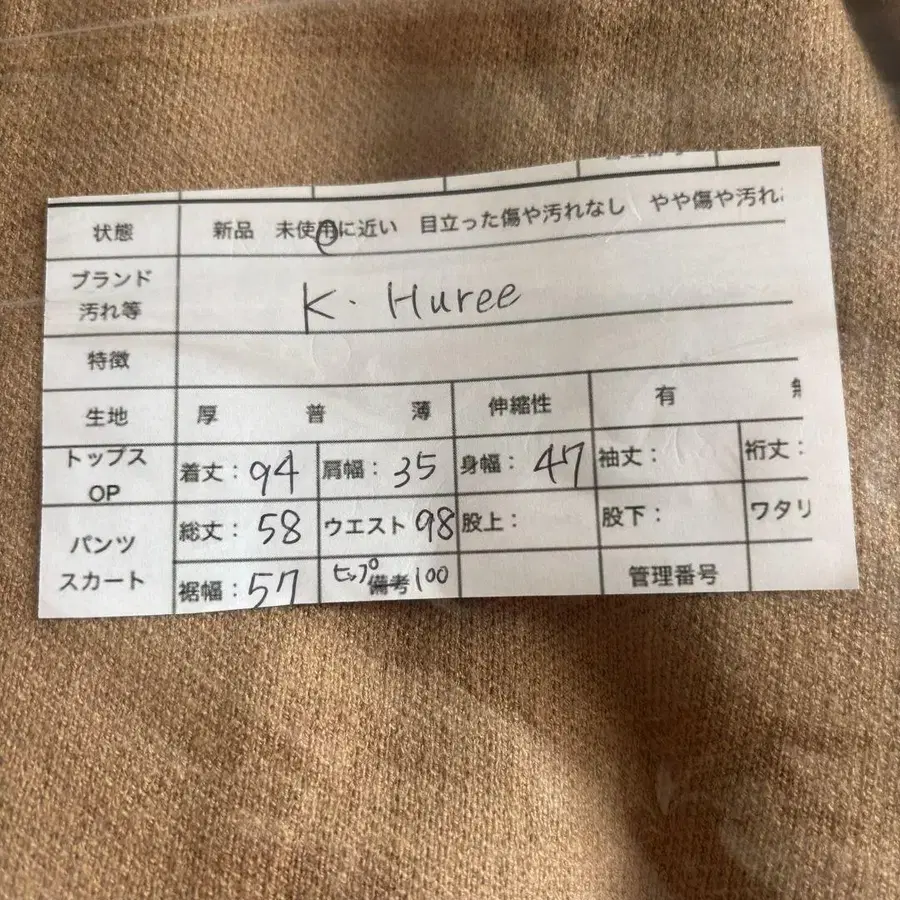 状態 新品 未使用に近い 目立った傷や汚れなし やや傷や汚れ
ブランド
汚れ等
K. Huree
特徴
生地 厚 普 薄 伸縮性 有
トップス
OP
着丈: 94 肩幅: 35 身幅: 47 袖丈: 裄丈:
パンツ
スカート
総丈: 58 ウエスト 98 股上: 股下: ワタリ
裾幅: 57 ヒップ 備考 100 管理番号